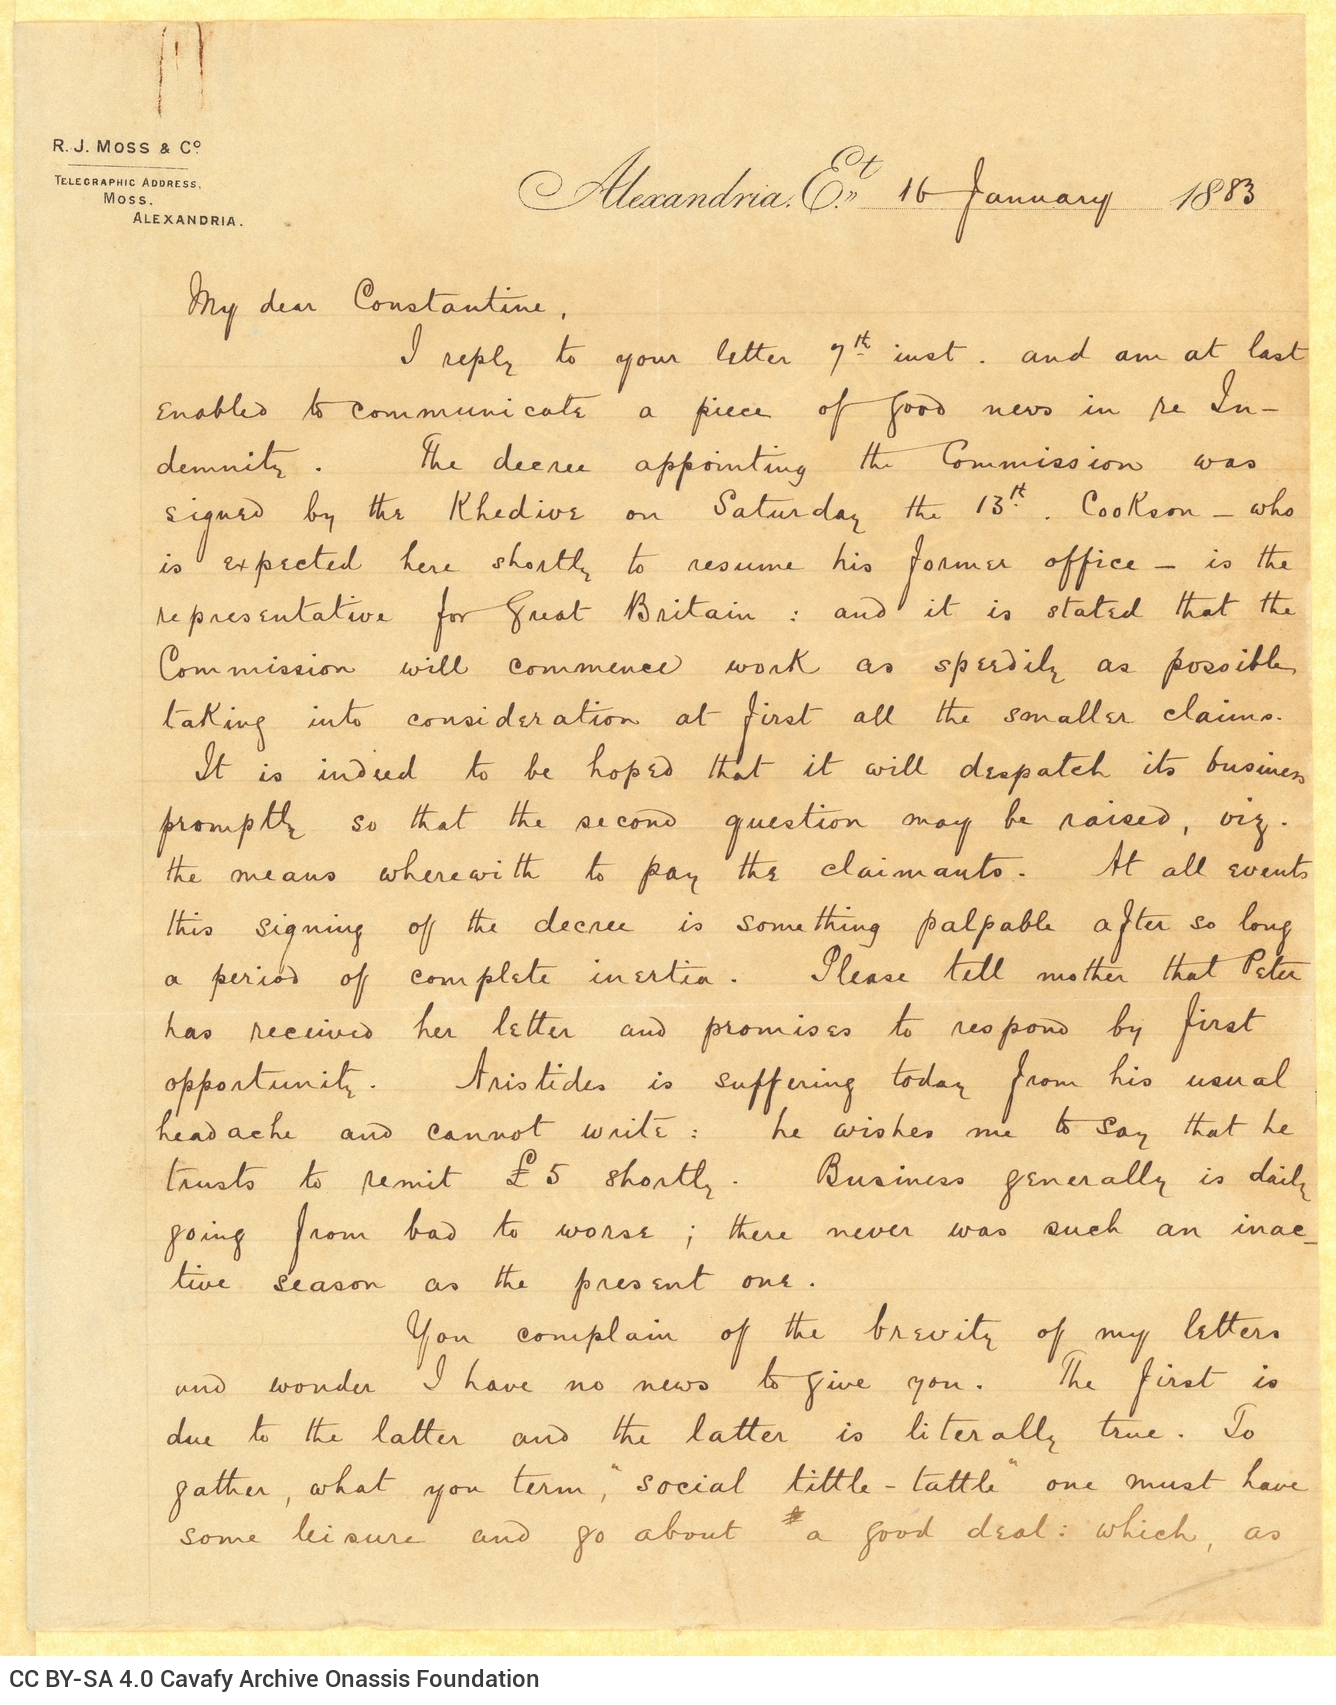 R. J. MOSS & Co.
TELEGRAPHIC ADDRESS,
MOSS.
ALEXANDRIA.
Alexandria. Et. 16 January 1883
My dear Constantine,
I reply to your letter 7th inst. and am at last
enabled to communicate a piece of good news in re In-
demnity. The decree appointing the Commission was
signed by the Khedive on Saturday the 13th. Cookson – who
is expected here shortly to resume his former office – is the
representative for Great Britain : and it is stated that the
Commission will commence work as speedily as possible
taking into consideration at first all the smaller claims.
It is indeed to be hoped that it will despatch its business
promptly so that the second question may be raised, viz.
the means wherewith to pay the claimants. At all events
this signing of the decree is something palpable after so long
a period of complete inertia. Please tell mother that Peter
has received her letter and promises to respond by first
opportunity. Aristides is suffering today from his usual
headache and cannot write : he wishes me to say that he
trusts to remit £5 shortly. Business generally is daily
going from bad to worse ; there never was such an inac-
tive season as the present one.
You complain of the brevity of my letters
and wonder I have no news to give you. The first is
due to the latter and the latter is literally true. To
gather, what you term, "social tittle-tattle" one must have
some leisure and go about a good deal : which, as
CC BY-SA 4.0 Cavafy Archive Onassis Foundation